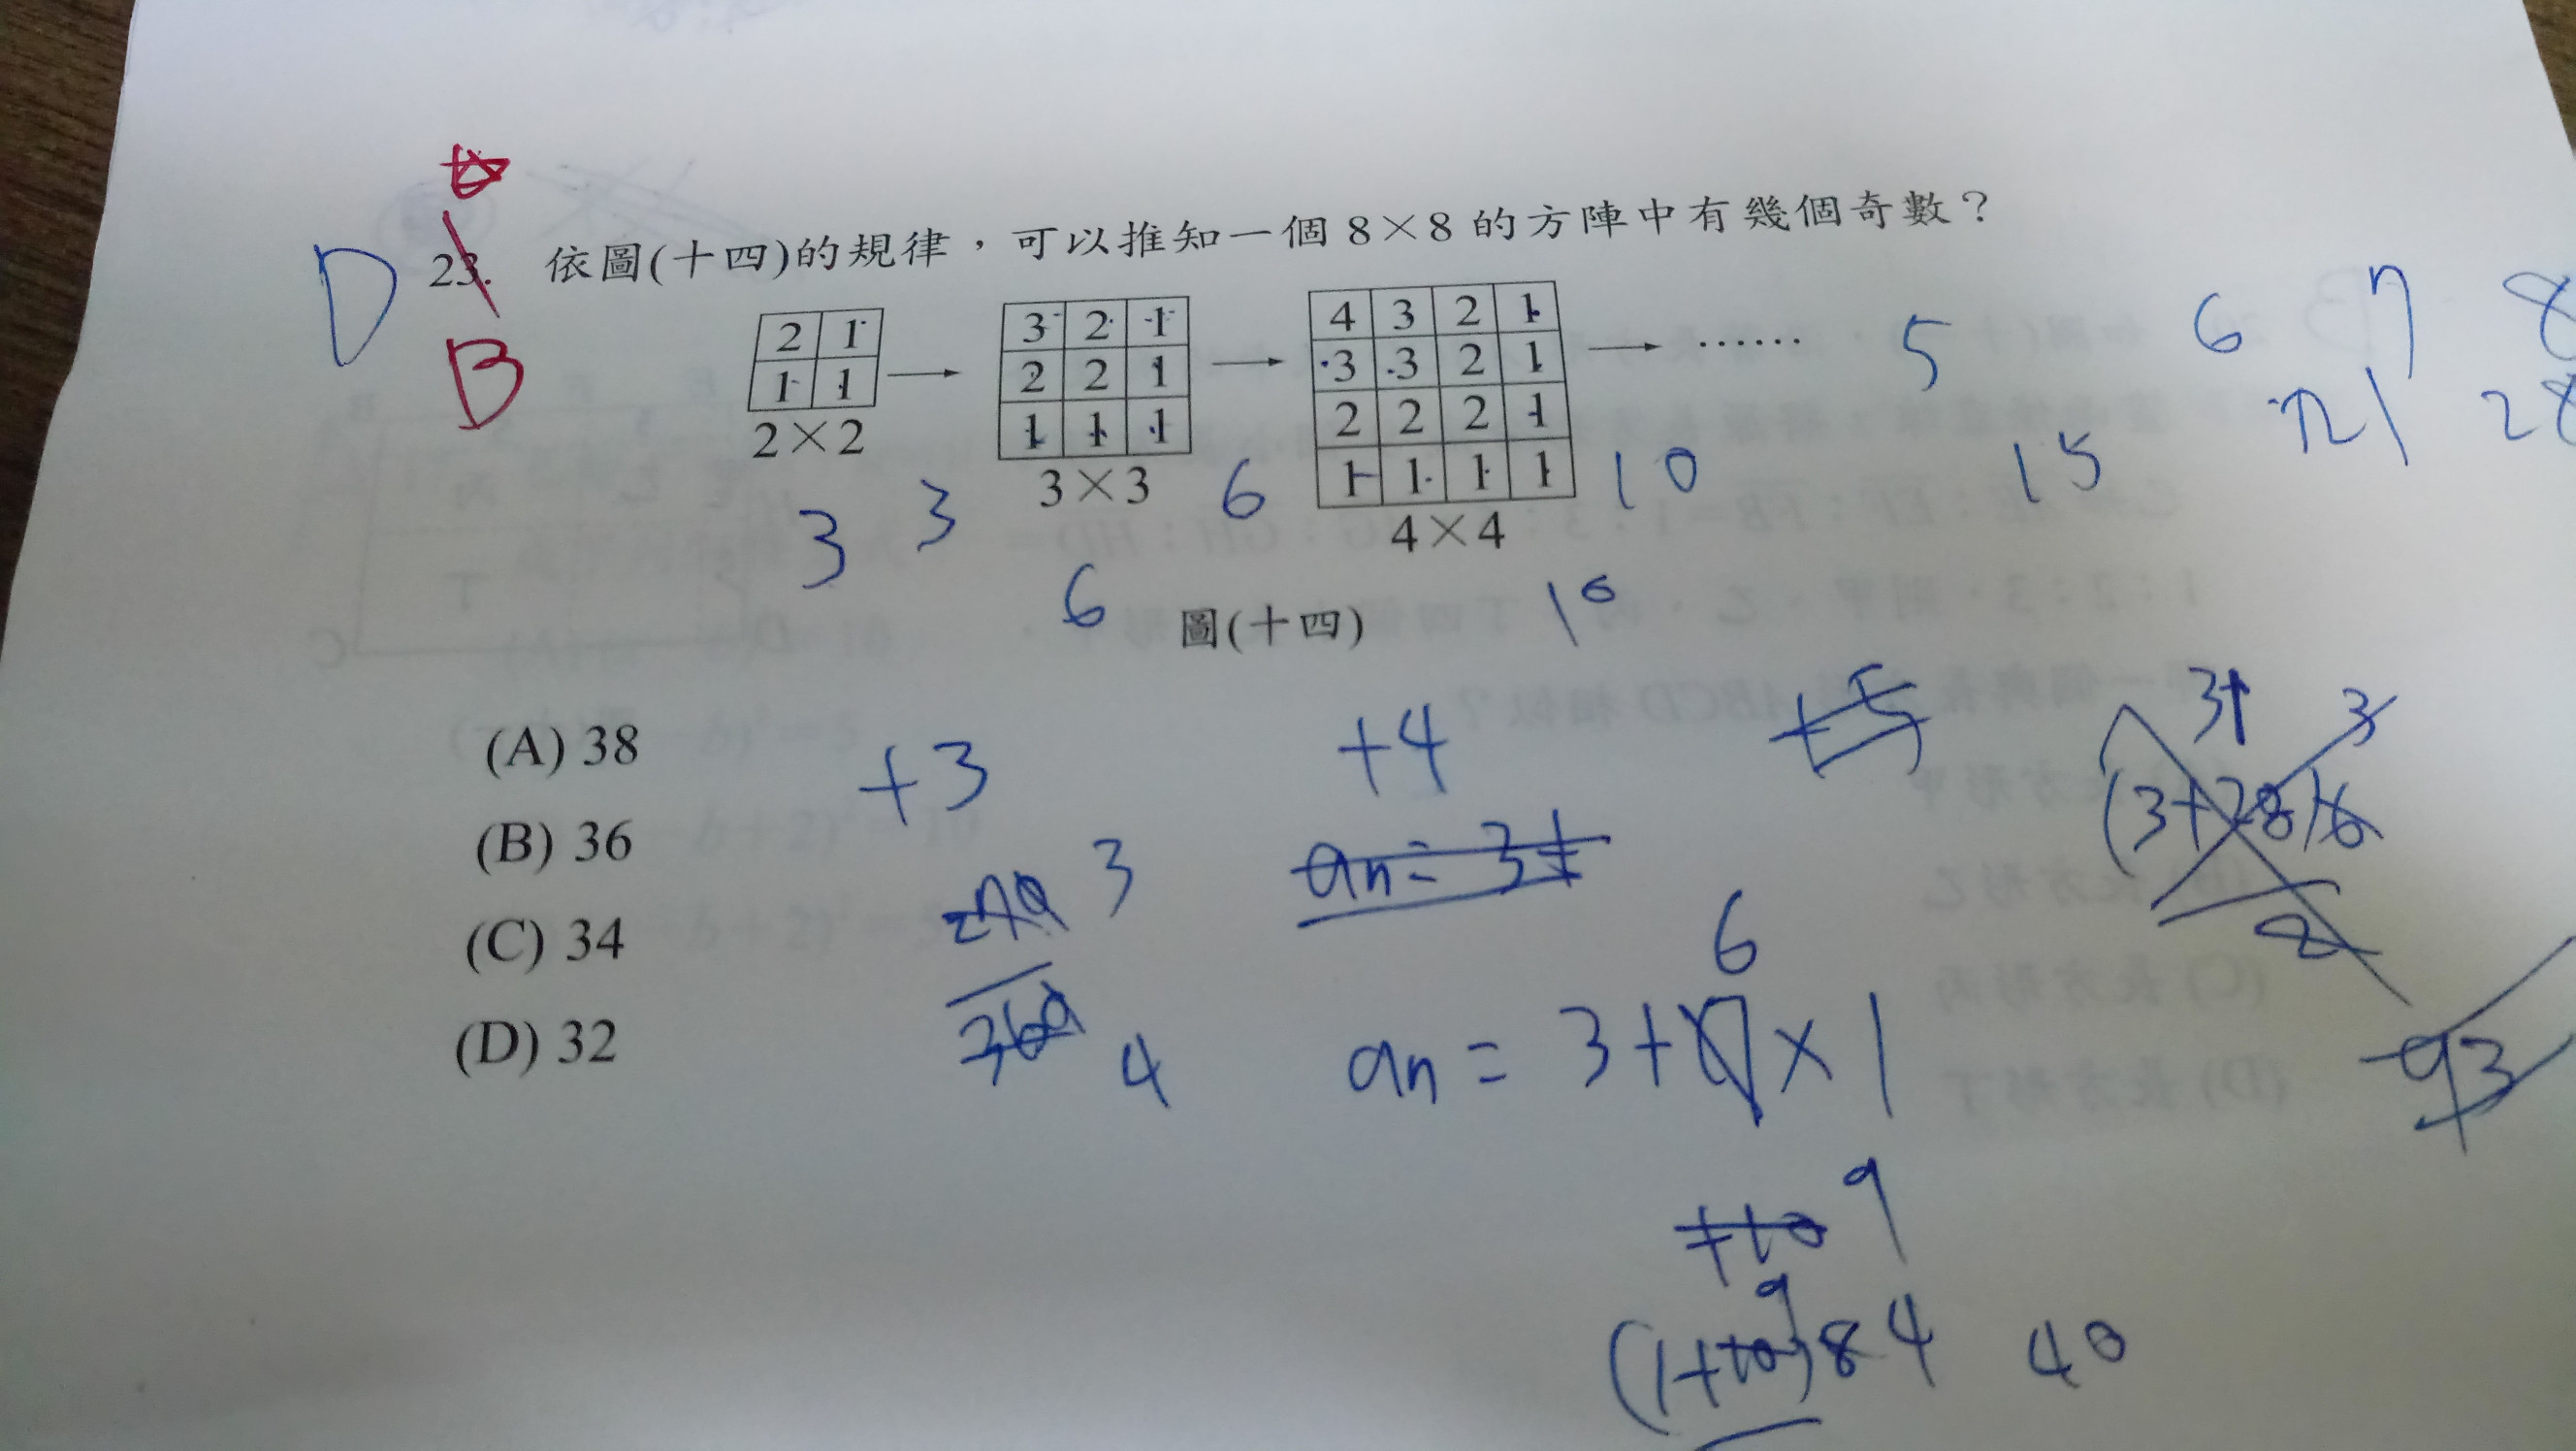 D
B
23. 依圖(十四)的規律，可以推知一個 8×8 的方陣中有幾個奇數？
2 1
1 1
2×2
3 2 1
2 2 1
1 1 1
3×3
4 3 2 1
3 3 2 1
2 2 2 1
1 1 1 1
4×4
……
5 6 7 8
3 3 6 10 15 21 28
6 10
圖(十四)
(A) 38
(B) 36
(C) 34
(D) 32
+3 +4 +5
3
4
an = 3+
6
an = 3+ ×1
9
9
(1+10)8 4 40
31 3
(3+28)×6
2
93